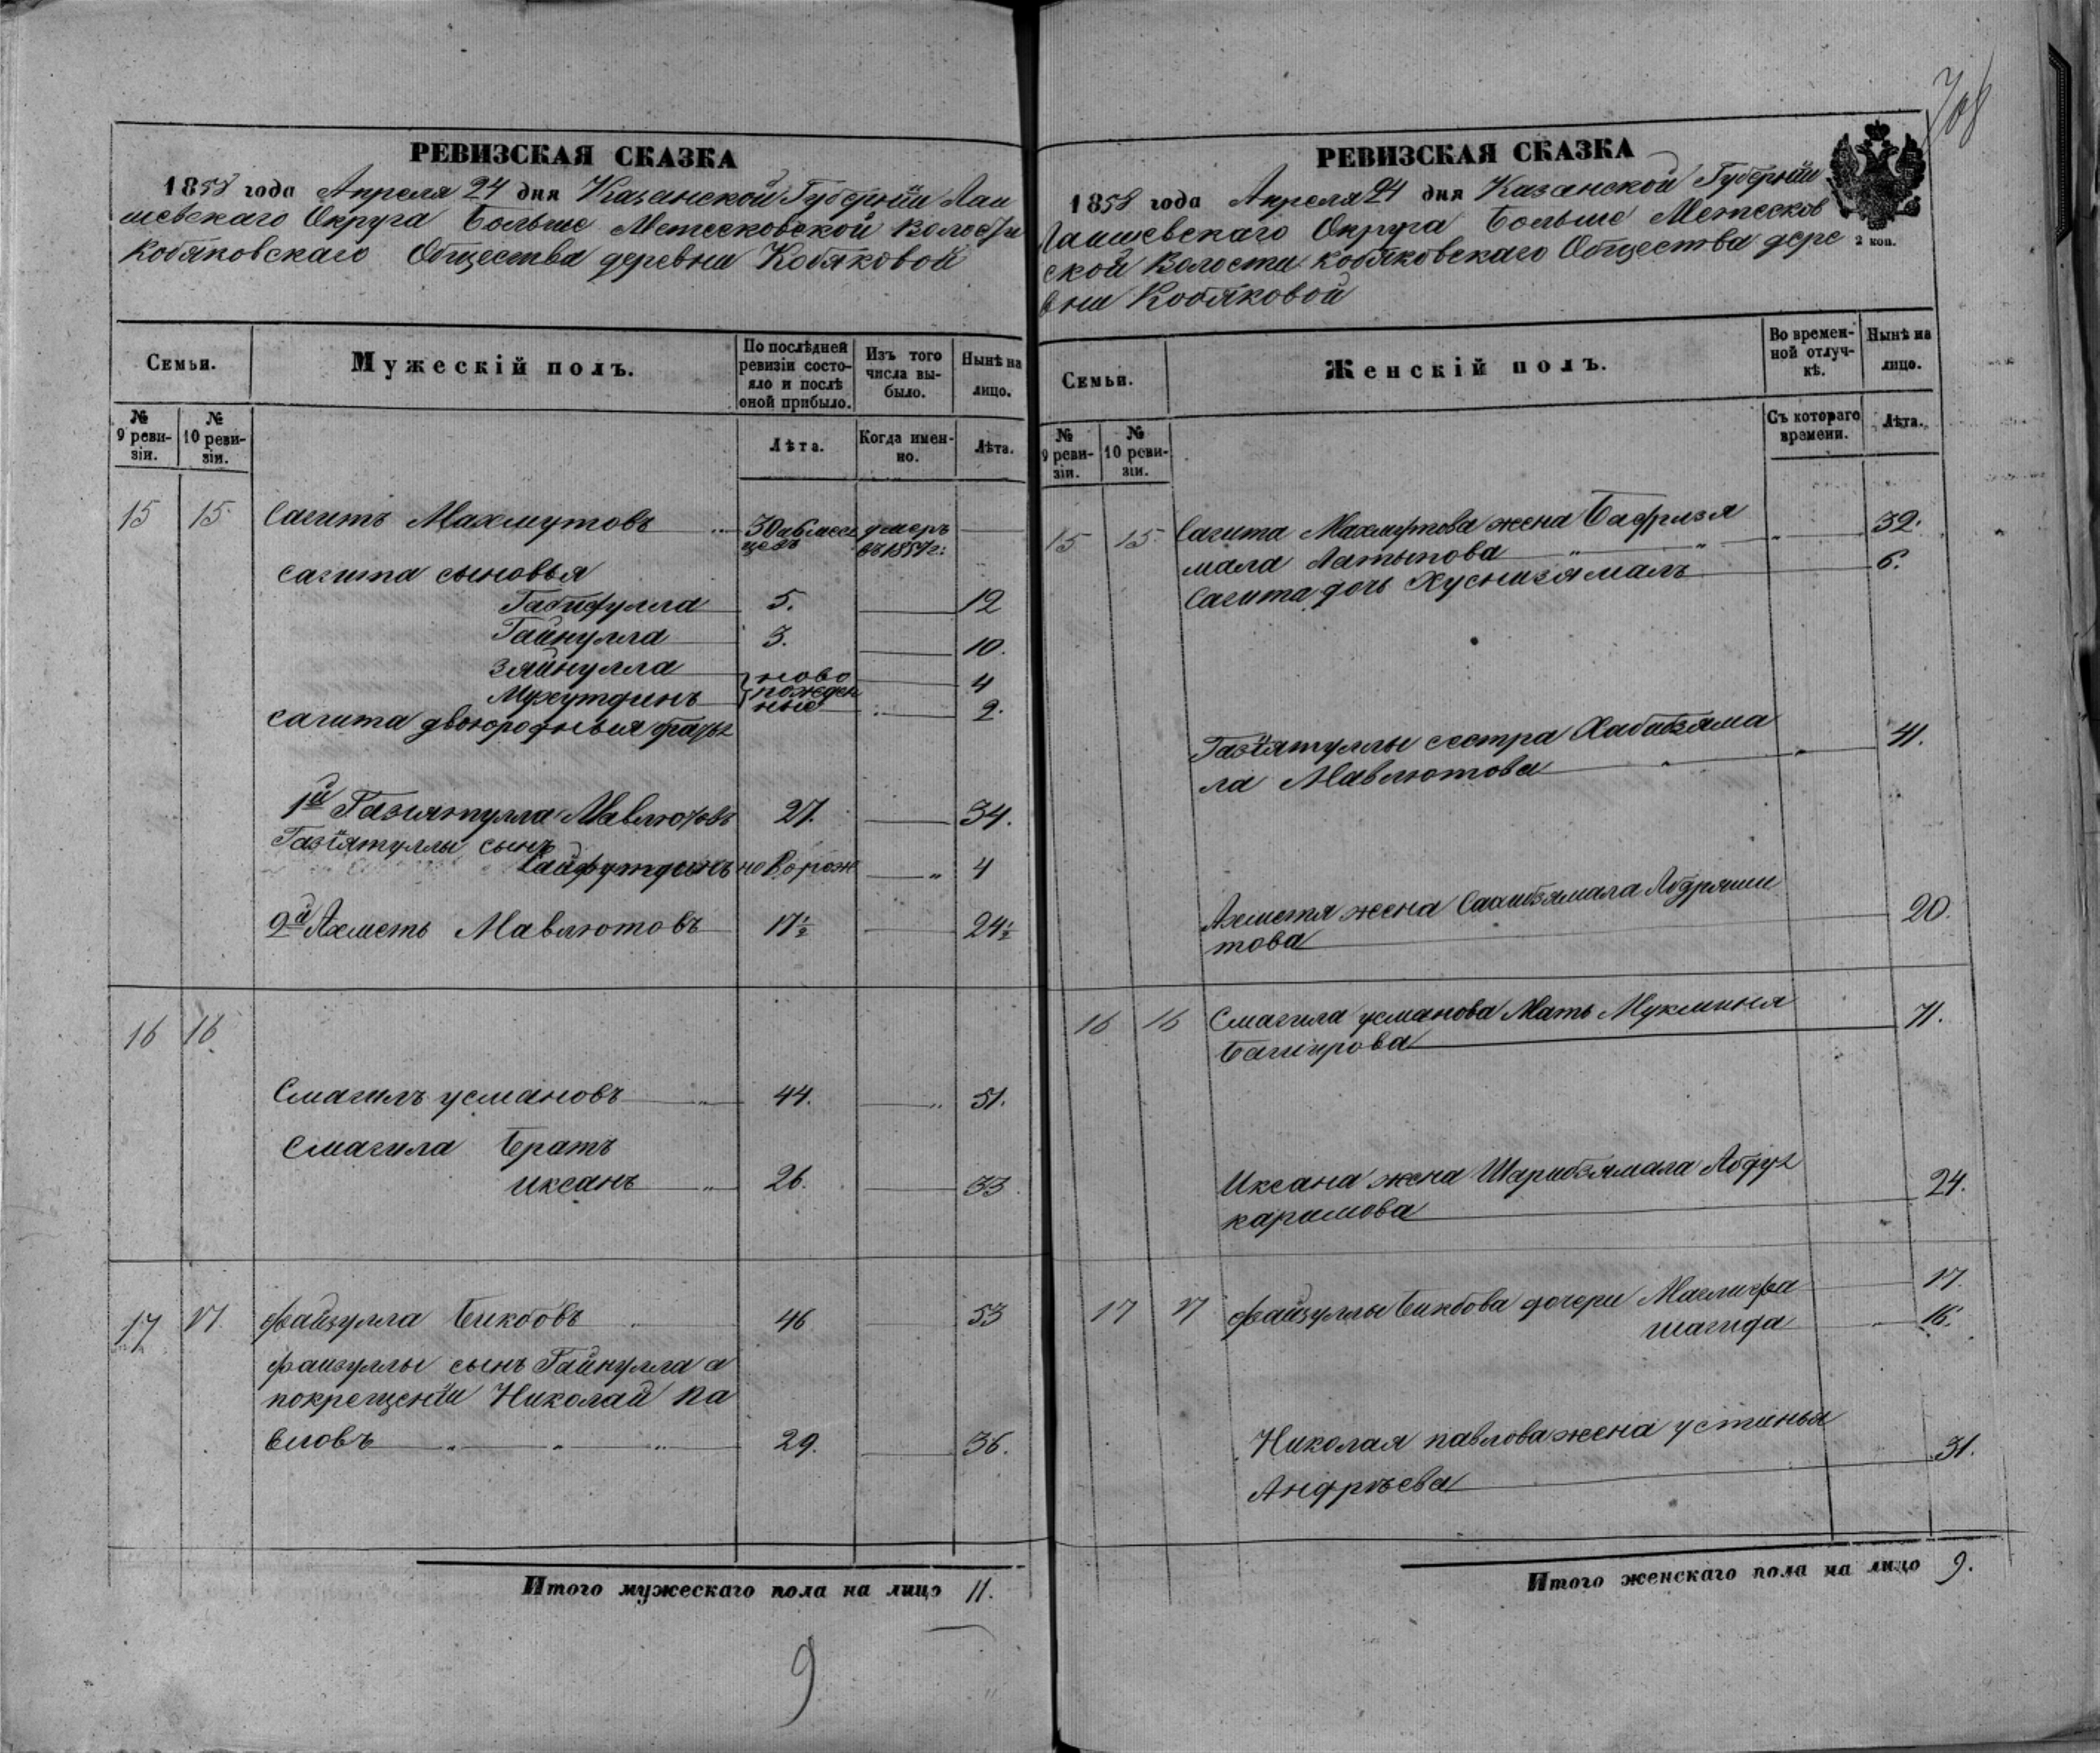 708
РЕВИЗСКАЯ СКАЗКА
1858 года Апреля 24 дня Казанской Губернии Лаи
шевскаго Округа Больше Метесковской Волости
Кобяковскаго Общества деревни Кобяковой
Семьи.
Мужескій полъ.
По послѣдней ревизіи состо-
яло и послѣ
оной прибыло.
Изъ того
числа вы-
было.
Нынѣ на
лицо.
№
9 реви-
зіи.
№
10 реви-
зіи.
Лѣта.
Когда имен-
но.
Лѣта.
15 15 Сагитъ Махмутовъ 30 и 6 меся умеръ
цевъ въ 1857 г:
Сагита сыновья
Габифулла 5. 12
Гайнулла 3. 10.
Зяйнулла ново 4
Мухутдинъ рожден 2.
ные
Сагита двоюродныя братья
1й Газіятулла Мавлютовъ 27. 34.
Газіятуллы сынъ
Сайфутдинъ новорож 4
2й Ахметь Мавлютовъ 17½ 24½
16 16
Смагилъ усмановъ 44. 51.
Смагила Братъ
иксанъ 26. 33
17 17 Файзулла Бикбовъ 46 53
Файзуллы сынъ Гайнулла а
покрещеніи Николай Па
вловъ 29. 36.
Итого мужескаго пола на лицо 11.
9
РЕВИЗСКАЯ СКАЗКА
1858 года Апреля 24 дня Казанской Губерніи
Лаишевскаго Округа Больше Метесков
ской Волости Кобяковскаго Общества дере
вни Кобяковой
2 коп.
Семьи.
Женскій полъ.
Во времен-
ной отлуч-
кѣ.
Нынѣ на
лицо.
№
9 реви-
зіи.
№
10 реви-
зіи.
Съ котораго
времени.
Лѣта.
15 15 Сагита Махмутова жена Бафизя 32.
мала Латыпова
Сагита дочь Хуснизямалъ 6.
Газіятуллы сестра Хабибзяма 41.
ла Мавлютова
Ахметя жена Сахибзямала Абдряши 20.
това
16 16 Смагила усманова Мать Мукминя 71.
Багирова
Иксана жена Шарибзямала Абдул 24.
каримова
17 17 Файзуллы Бикбова дочери Маглифа 17.
шагида 16.
Николая павлова жена устинья 31.
Андрѣева
Итого женскаго пола на лицо 9.